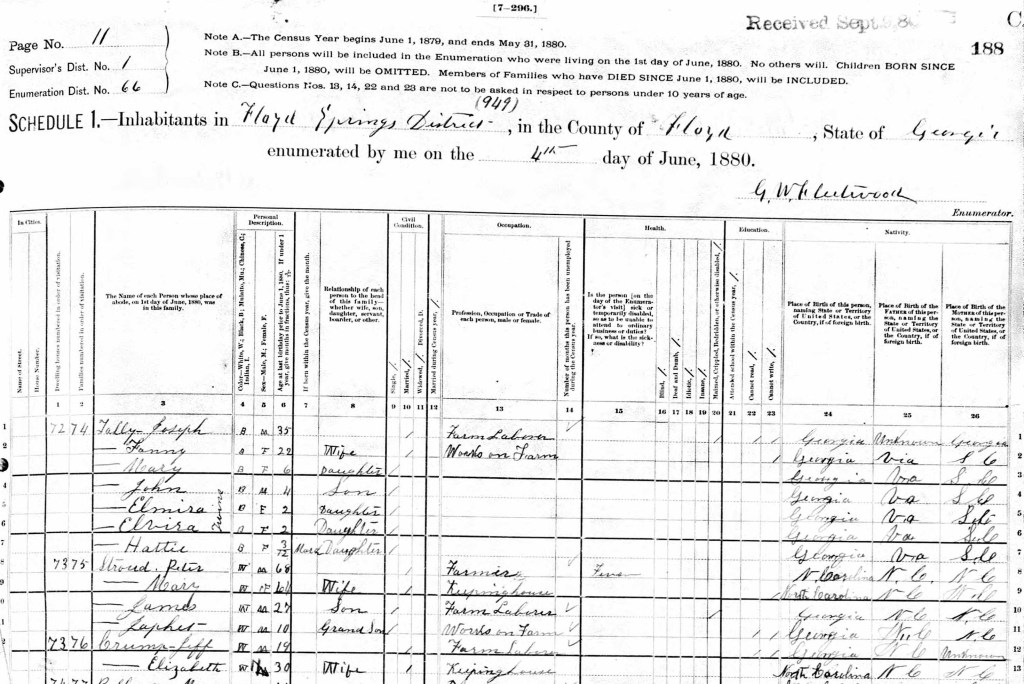 [7-296.]
Received Sept
C
188
Page No. 11
Supervisor's Dist. No. 1
Enumeration Dist. No. 66
Note A.—The Census Year begins June 1, 1879, and ends May 31, 1880.
Note B.—All persons will be included in the Enumeration who were living on the 1st day of June, 1880. No others will. Children BORN SINCE
June 1, 1880, will be OMITTED. Members of Families who have DIED SINCE June 1, 1880, will be INCLUDED.
Note C.—Questions Nos. 13, 14, 22 and 23 are not to be asked in respect to persons under 10 years of age.
(949)
SCHEDULE 1.—Inhabitants in Floyd Springs District, in the County of Floyd, State of Georgia
enumerated by me on the 4th day of June, 1880.
G. W. Fleetwood
Enumerator.
In Cities. Personal Description. Civil Condition. Occupation. Health. Education. Nativity.
Name of Street.
House Number.
Dwelling houses numbered in order of visitation.
Families numbered in order of visitation.
The Name of each Person whose place of abode, on 1st day of June, 1880, was in this family.
Color—White, W.; Black, B.; Mulatto, Mu.; Chinese, C.; Indian, I.
Sex—Male, M.; Female, F.
Age at last birthday prior to June 1, 1880. If under 1 year, give months in fractions, thus: 3/12
If born within the Census year, give the month.
Relationship of each person to the head of this family—whether wife, son, daughter, servant, boarder, or other.
Single, /.
Married, /.
Widowed, /. Divorced, D.
Married during Census year, /.
Profession, Occupation or Trade of each person, male or female.
Number of months this person has been unemployed during the Census year.
Is the person [on the day of the Enumerator's visit] sick or temporarily disabled, so as to be unable to attend to ordinary business or duties? If so, what is the sickness or disability?
Blind, /.
Deaf and Dumb, /.
Idiotic, /.
Insane, /.
Maimed, Crippled, Bedridden, or otherwise disabled, /.
Attended school within the Census year, /.
Cannot read, /.
Cannot write, /.
Place of Birth of this person, naming State or Territory of United States, or the Country, if of foreign birth.
Place of Birth of the FATHER of this person, naming the State or Territory of United States, or the Country, if of foreign birth.
Place of Birth of the MOTHER of this person, naming the State or Territory of United States, or the Country, if of foreign birth.
1 2 3 4 5 6 7 8 9 10 11 12 13 14 15 16 17 18 19 20 21 22 23 24 25 26
1 72 74 Tally Joseph B M 35 / Farm Laborer / / / Georgia Unknown Georgia 1
2 — Fanny B F 22 Wife / Works on Farm / Georgia Via S C 2
3 — Mary B F 6 Daughter / Georgia Va S. C 3
4 — John B M 4 Son / Georgia Va S C 4
5 — Elmira Twins B F 2 Daughter / Georgia Va S C 5
6 — Elvira B F 2 Daughter / Georgia Va S C 6
7 — Hattie B F 3/12 March Daughter / Georgia Va S C 7
8 73 75 Stroud. Peter W M 68 / Farmer Fever / N Carolina N. C. N C 8
9 — Mary W F 64 Wife / Keepinghouse / North Carolina N C N C 9
10 — James W M 27 Son / Farm Laborer / Georgia N C N. C 10
11 — Japhet W M 10 Grand Son / Works on Farm / / Georgia N C N C 11
12 73 76 Crump Jeff W M 19 / Farm Laborer / / Georgia N C Unknown 12
— Elizabeth W 30 Wife / Keepinghouse / North Carolina N C N C 13